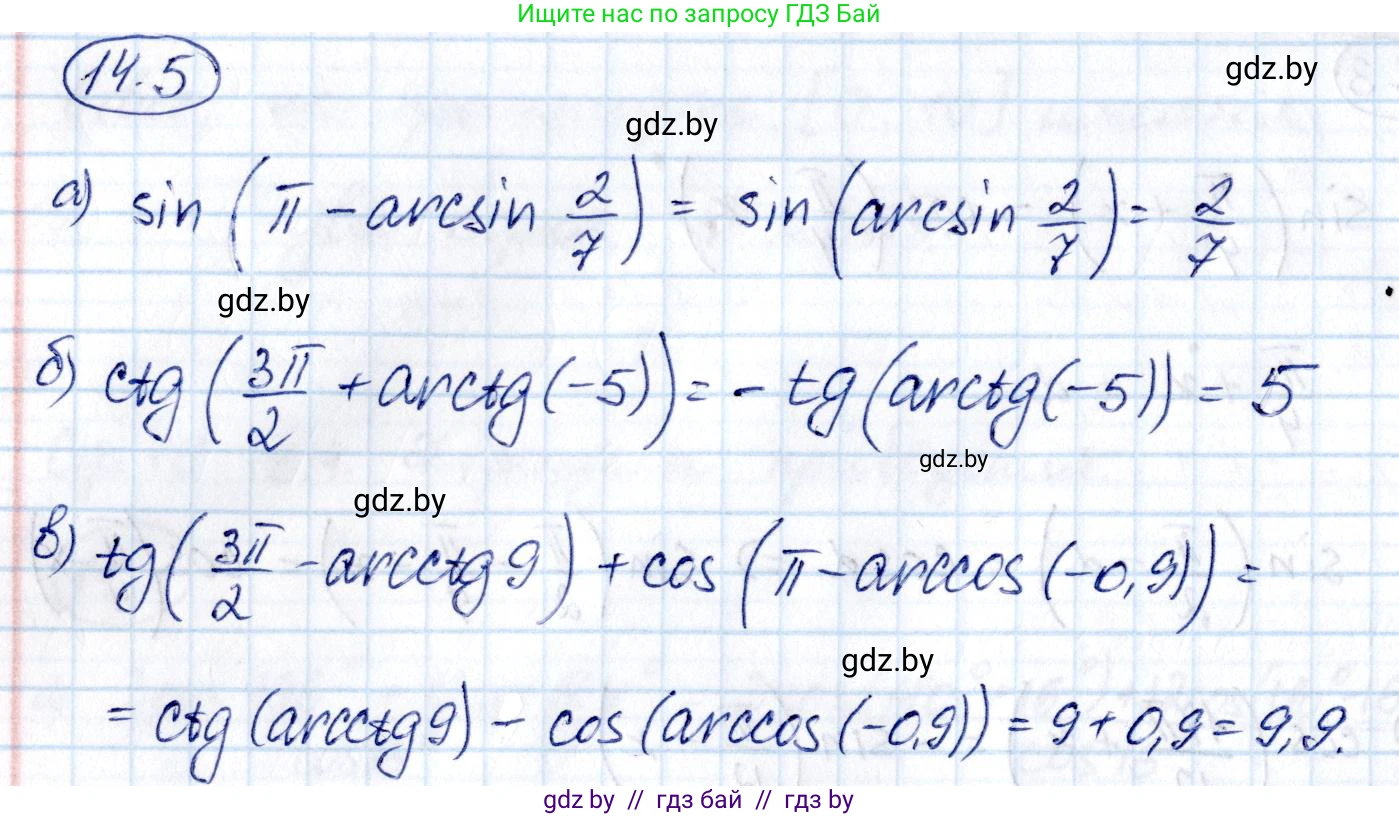 Ищите нас по запросу ГДЗ Бай
14.5
gdz.by
gdz.by
а) sin (π - arcsin 2/7) = sin (arcsin 2/7) = 2/7
gdz.by
б) ctg (3π/2 + arctg(-5)) = - tg (arctg(-5)) = 5
gdz.by
gdz.by
в) tg (3π/2 - arcctg 9) + cos (π - arccos (-0,9)) =
gdz.by
= ctg (arcctg 9) - cos (arccos (-0,9)) = 9 + 0,9 = 9,9.
gdz by // гдз бай // гдз by